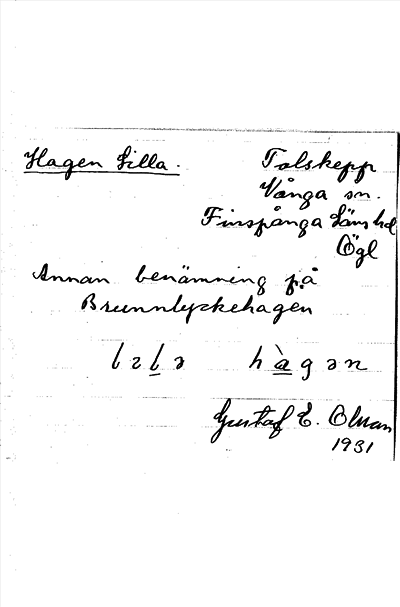 Hagen Lilla.
Tolskepp
Vånga sn.
Finspånga läns hd
Ögl
Annan benämning på
Brunnlyckehagen
hàgən
Gustaf E.
1931